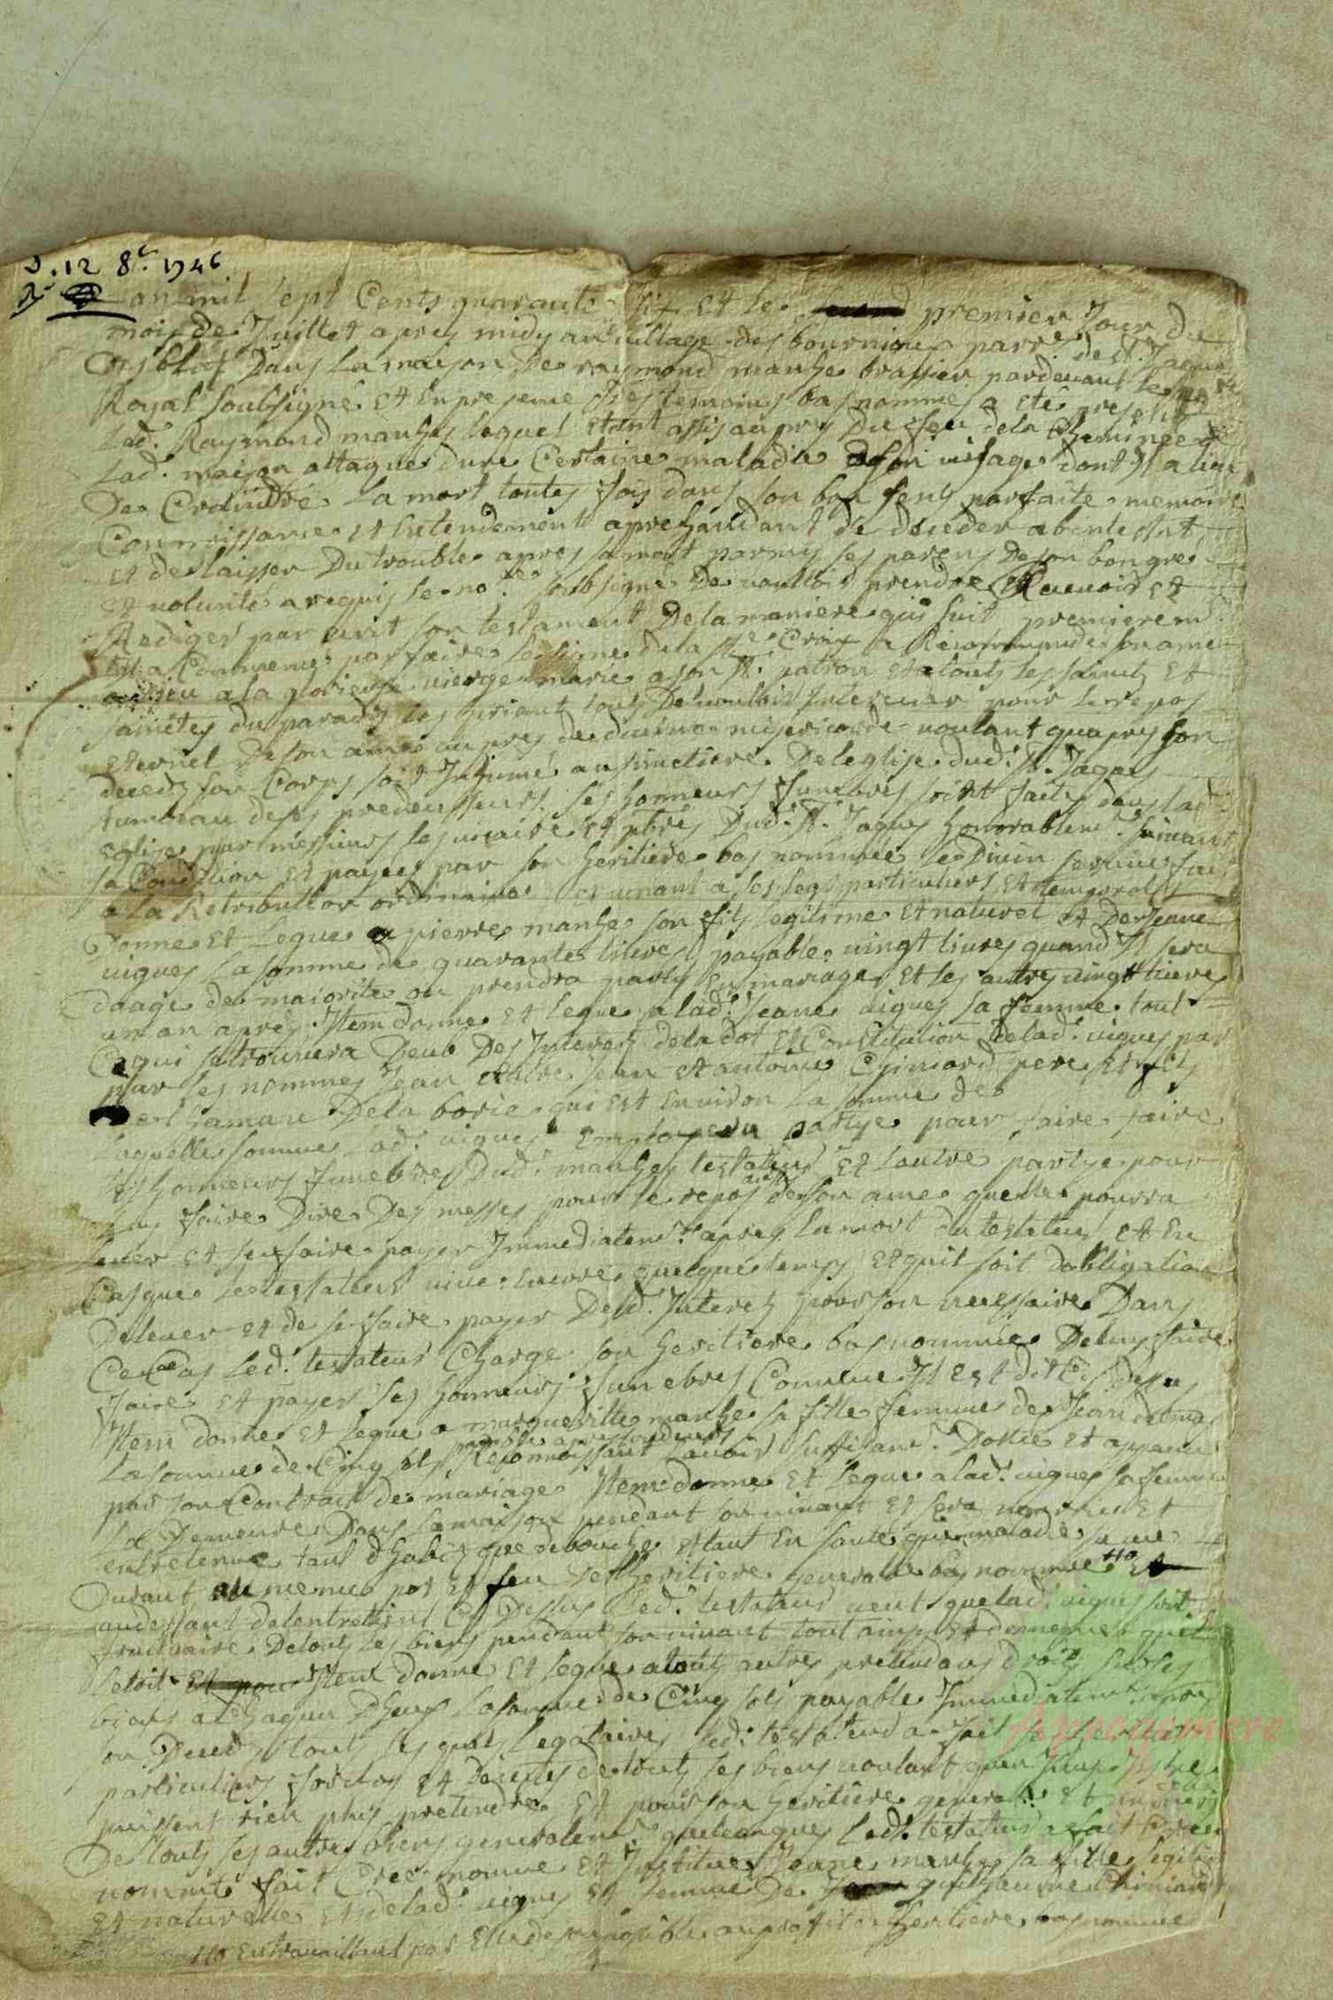 D. 12 8.e 1746
L'an mil sept Cents quarante six et le premier Jour du
mois de Juillet apres midy au village des bournioux parr.e de st. Jaques
des blats Dans la maison De raymond manhe brassier pardevant le no.re
Royal soubsigne et En presence des temoins bas nommes a ete present
Led. Raymond manhes lequel etant assis aupres Du feu de la Cheminee de
Lad. maison attaque dune Certaine maladie a son visage dont Il a lieu
De Craindre La mort toutes fois dans son bon sens parfaite memoire
Connoissance et Entendement aprehandant de deceder abintestat
Et de laisser Du trouble apres sa mort parmy ses parens De son bon gre
et volunte a requis le no.re soubsigne De voulloir prendre Recevoir et
Rediger par ecrit son testament De la maniere qui suit premierem.t
a Commence par faire le signe de la s.te Croix a Recommande son ame
a dieu a la glorieuse vierge marie a son st. patron et a touts les saints et
saintes du paradis les priant touts De vouloir Interceder pour le repos
eternel De son ame aupres de divine misericorde voulant quapres son
deceds son Corps soit Inhume au simetiere De leglise dud. st. Jaques
tumbeau de ses predecesseurs ses honneurs funebres soint faits dans lad.
eglise par messieurs le vicaire et pbres Dud. st. Jaques honorablem.t suivant
sa Condition et payees par son heritiere bas nommee le Divin service fait
a la Retribution ordinaire et venant a ses legs particuliers et temporels
Donne et Legue a pierre manhe son fils legitime et naturel et De Jeane
vigues La somme de quarante livres payable vingt livres quand Il sera
daage de majorite ou prendra party En mariage et les autres vingt livres
un an apres. Item donne et legue a lad. Jeane vigues sa femme tout
Ce qui se trouvera Deub Des Interets de la dot et Constitution de lad. vigues par
par les nommes Jean et autre Jean et antoine Chiniard pere et fils
De la borie qui est Environ la somme de
Laquelle somme lad. vigues Employera partye pour faire faire
les honneurs funebres Dud. manhes testateur et l'autre partye pour
faire Dire Des messes pour le repos de son ame quelle pourra
lever et se faire payer Immediatem.t apres la mort du testateur et En
Cas que le testateur vive encore quelque temps et quil soit dobligation
De lever et de se faire payer Desd. Interets pour son necessaire Dans
Ce Cas led. testateur Charge son heritiere bas nommee De luy faire
faire et payer ses honneurs funebres Comme Il est dit Cy dessus
Item donne et legue a margueritte manhe sa fille femme de Jean delmas
La somme de Cinq sols Reconnoissant avoir suffisam.t Dottee et appanee
par son Contrat de mariage Item donne et legue a lad. vigues sa femme
La Demeure Dans la maison pendant son vivant et sera nourrie et
entretenue tant d'habits que de bouche etant En sante que malade sa vie
Durant au meme pot et feu De lheritiere generalle bas nommee Ho
audessant de lentretient Cy Dessus led. testateur veut que lad. vigues soit
fruituaire De touts les biens pendant son vivant tout ainsy
letoit Item donne et legue a touts autres pretendans droit sur ses
biens a Chaqun Dheux La somme de Cinq sols payable Immediatem.t apres
son Deceds touts lesquels legataires led. testateur a fait ses heritiers
particuliers forclos et Dejetes de touts ses biens voulant quen Iceux Ils ne
puissent rien plus pretendre Et pour son heritiere generalle et universelle
De touts ses autres biens generalem.t quelconques led. testateur a fait Cree
nomme fait Cree nomme et Institue Jeane manhes sa fille legitime
et naturelle et de lad. vigues et femme De guillaume Chiniard
Ho En travaillant par Elle de son possible au profit de lheritiere bas nommee
Aprogemere